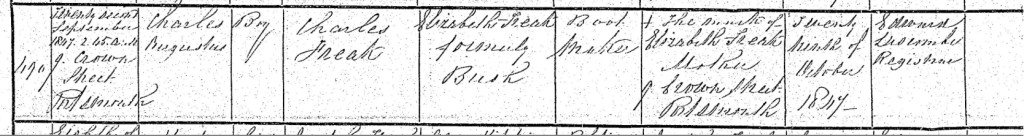 490
Twenty second
September
1847. 2.45 a.m
9. Crown
Street
Portsmouth
Charles
Augustus
Boy
Charles
Freak
Elizabeth Freak
formerly
Bush
Boot
Maker
+ The mark of
Elizabeth Freak
Mother
9 Crown Street
Portsmouth
Twenty
ninth of
October
1847
Edward
Luscombe
Registrar
Eighth of